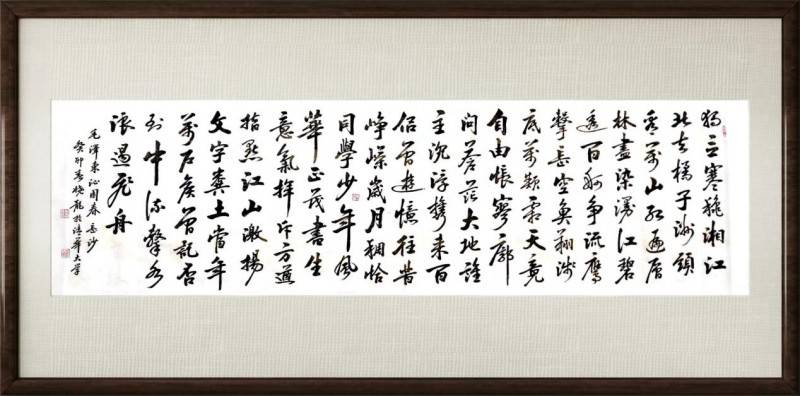 獨立寒秋湘江
北去橘子洲頭
看萬山红遍層
林盡染漫江碧
透百舸争流鷹
擊長空魚翔淺
底萬類霜天竞
自由悵寥廓
問蒼茫大地誰
主沉浮携来百
侣曾遊憶往昔
崢嶸歲月稠恰
同學少年風
華正茂書生
意氣揮斥方遒
指點江山激揚
文字糞土當年
萬户侯曾記否
到中流擊水
浪遏飛舟
毛澤東沁园春長沙
癸卯春 龍於清華大学